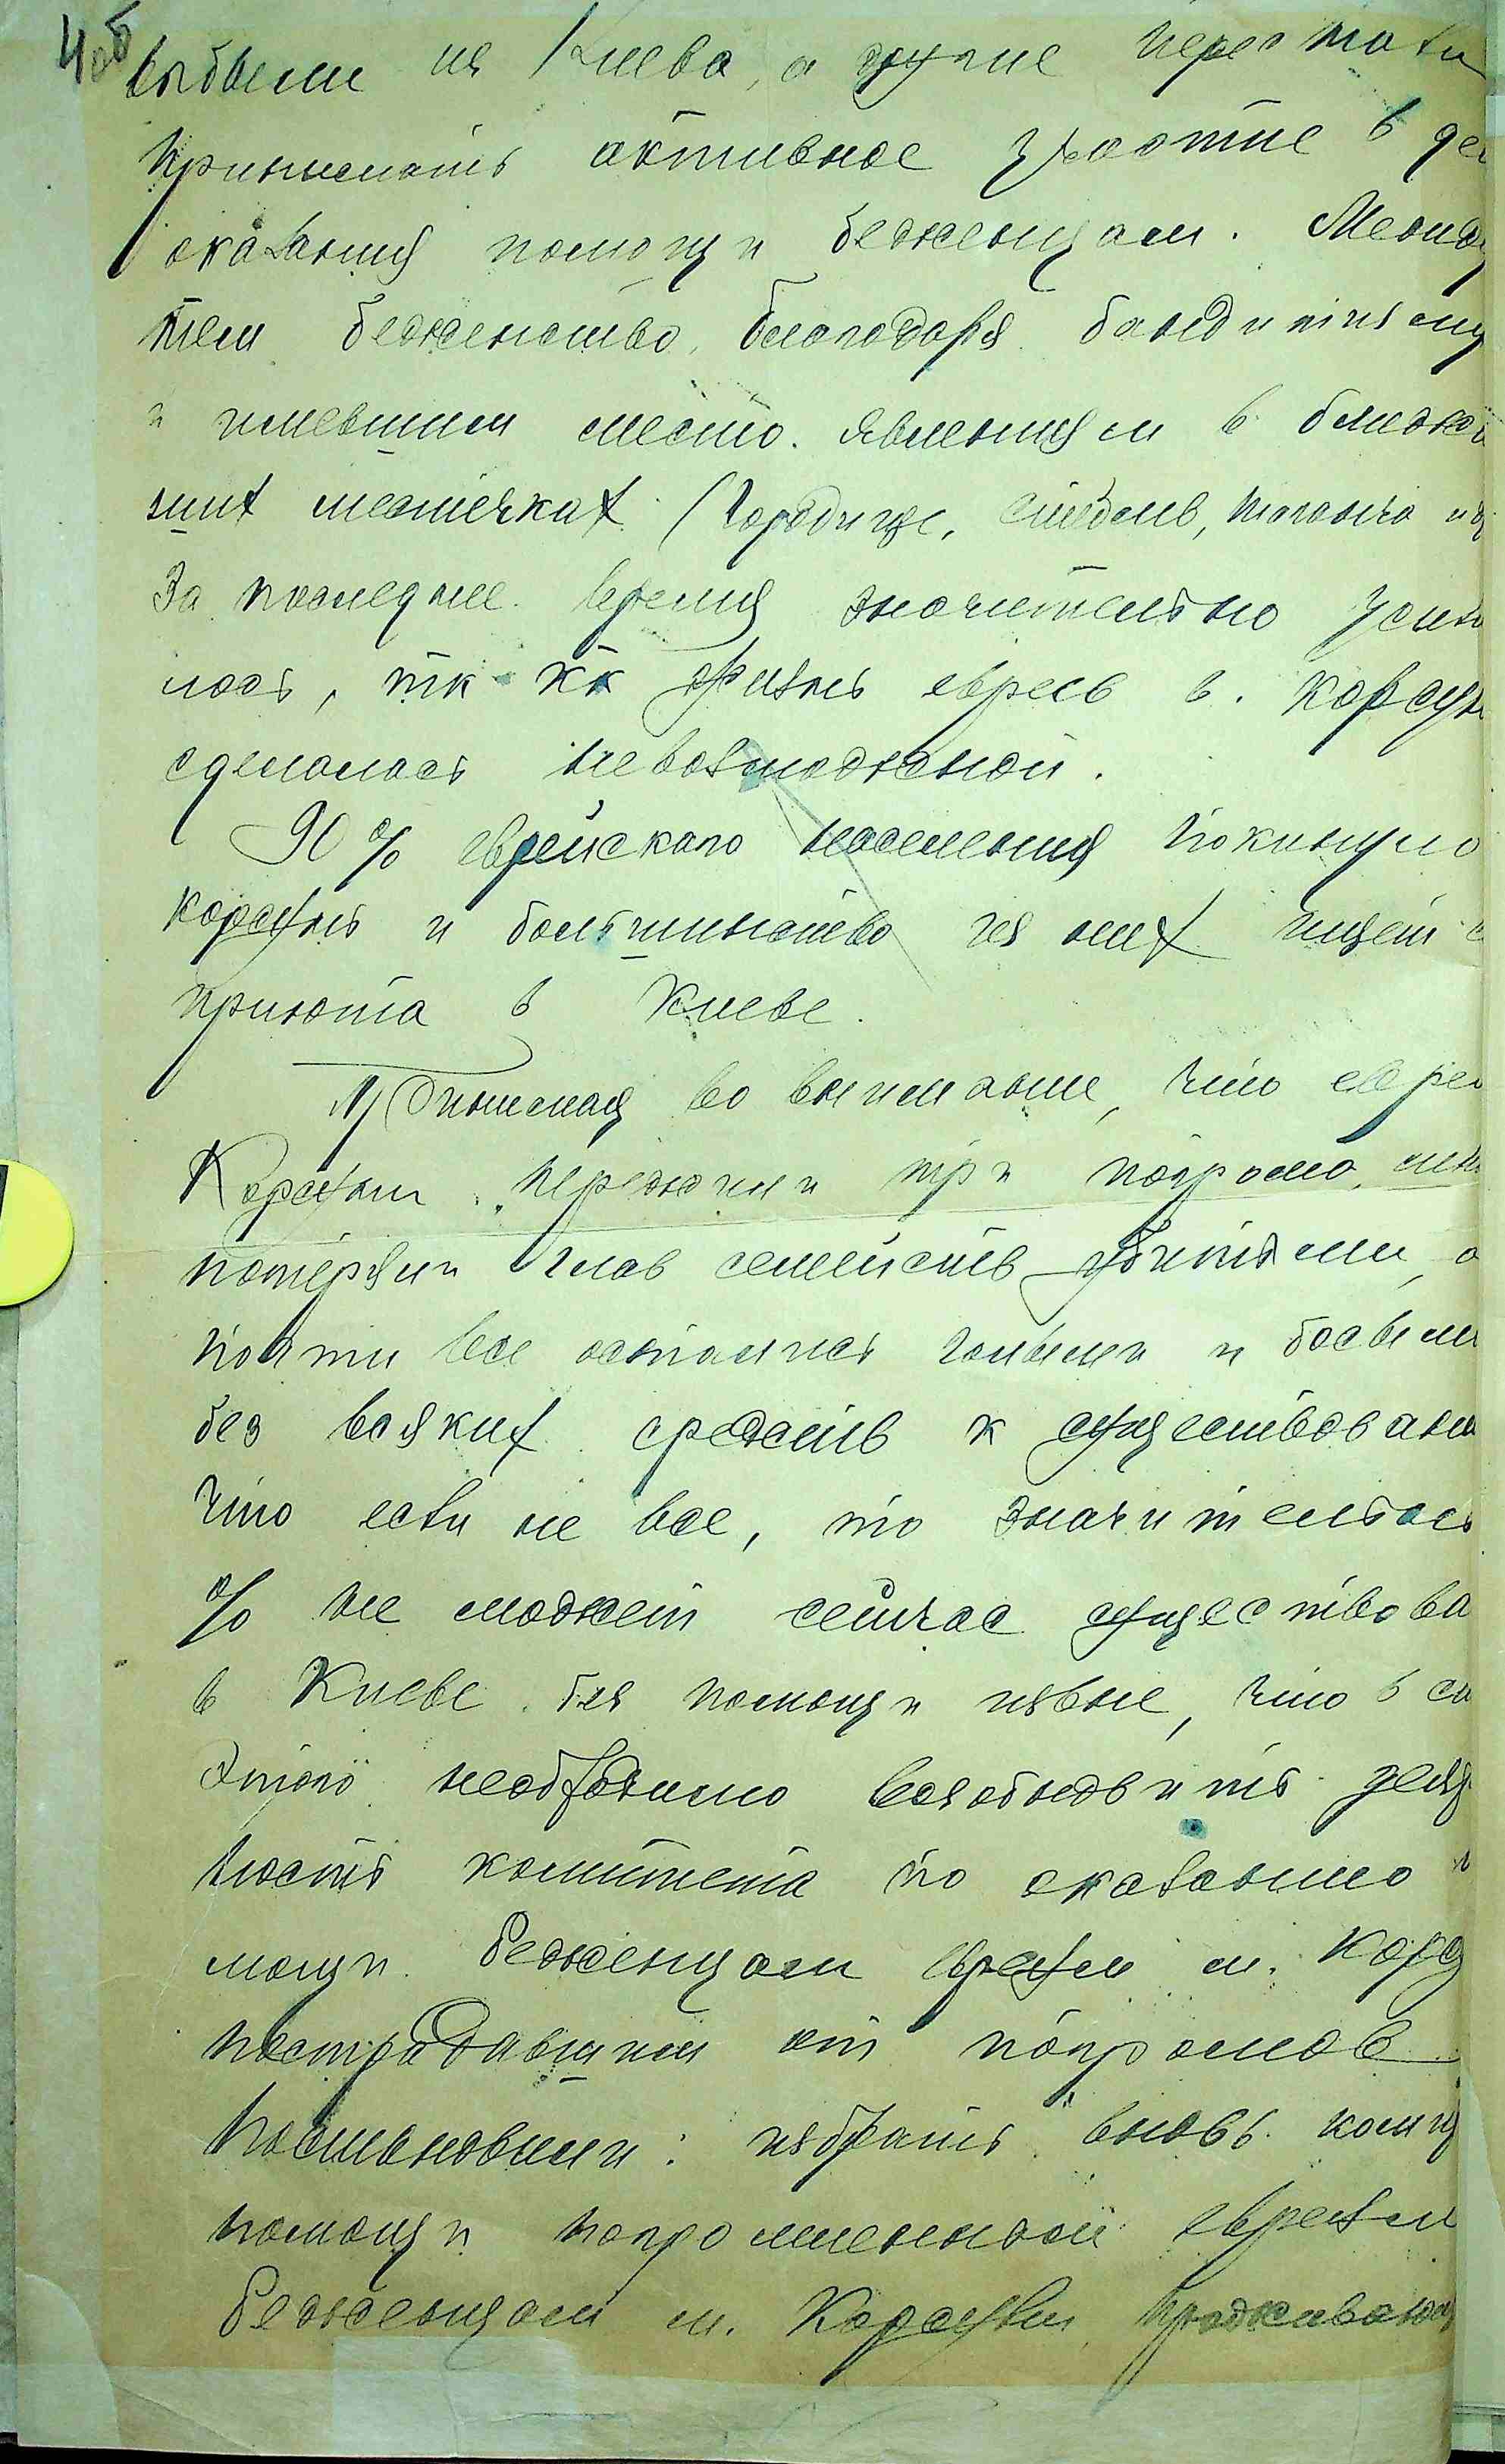 4об
выбыли из Киева, а другие перестали
принимать активное участие в де
оказания помощи беженцам. Между
тем беженство, благодаря бандитизму
и имевшим место явлениям в ближай
ших местечках (Городище, Стеблев, Таганча и д
За последнее время значительно усили
лось, тк кк жизнь евреев в Корсун
сделалась невозможной.
90% еврейского населения покинуло
Корсунь и большинство из них ищет с
приюта в Киеве.
Принимая во внимание, что евреи
Корсуни пережили три погрома,
потеряли глав семейств убитыми, а
почти все остались голыми и босыми
без всяких средств к существовани
что если не все, то значительный
% не может сейчас существова
в Киеве без помощи извне, что в си
этого необходимо возобновить деят
ность комитета по оказанию п
мощи беженцам евреям м. Корсу
пострадавшим от погромов
постановили: избрать вновь коми
помощи погромленной евреям
беженцам м. Корсуни, проживающ